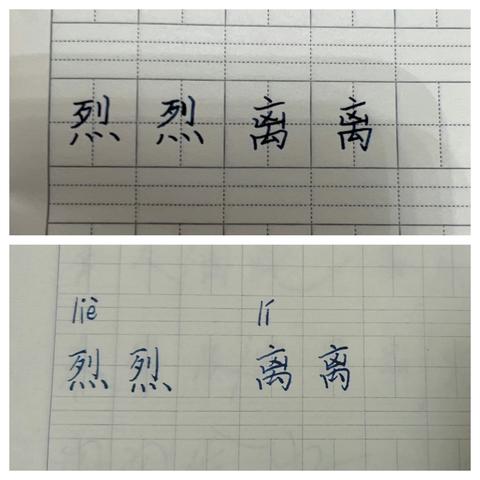 烈 烈 离 离
liè lí
烈 烈 离 离